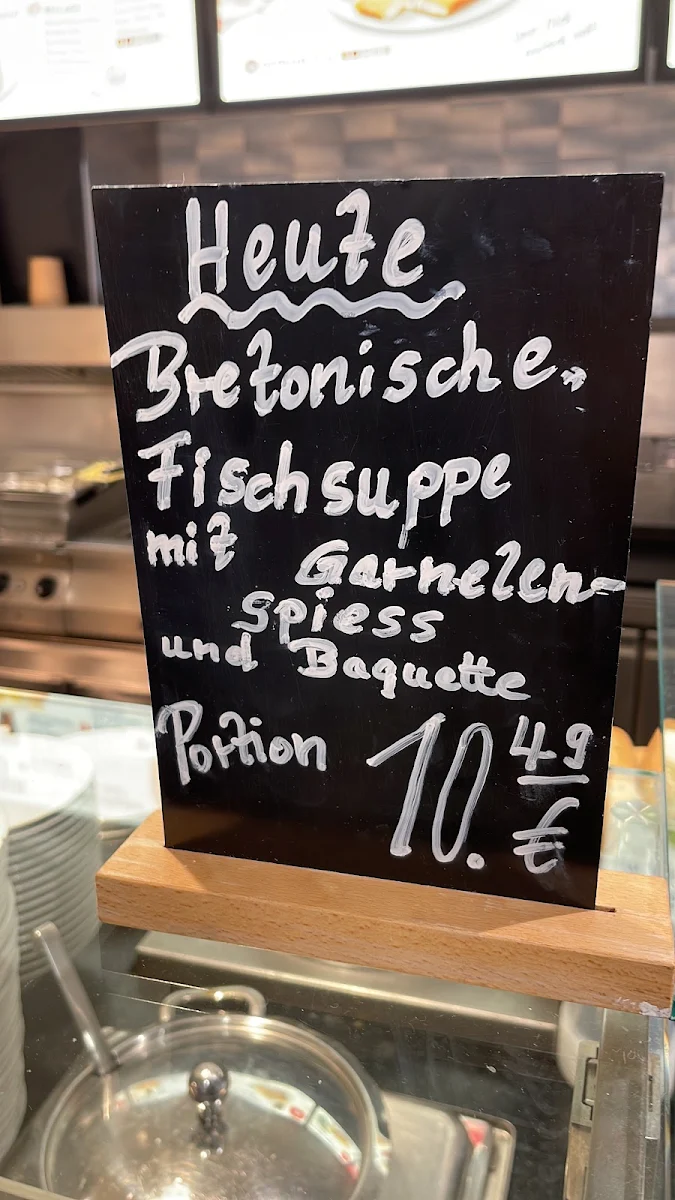 Heute
Bretonische
Fischsuppe
mit Garnelen-
spiess
und Baquette
Portion 10.49 €